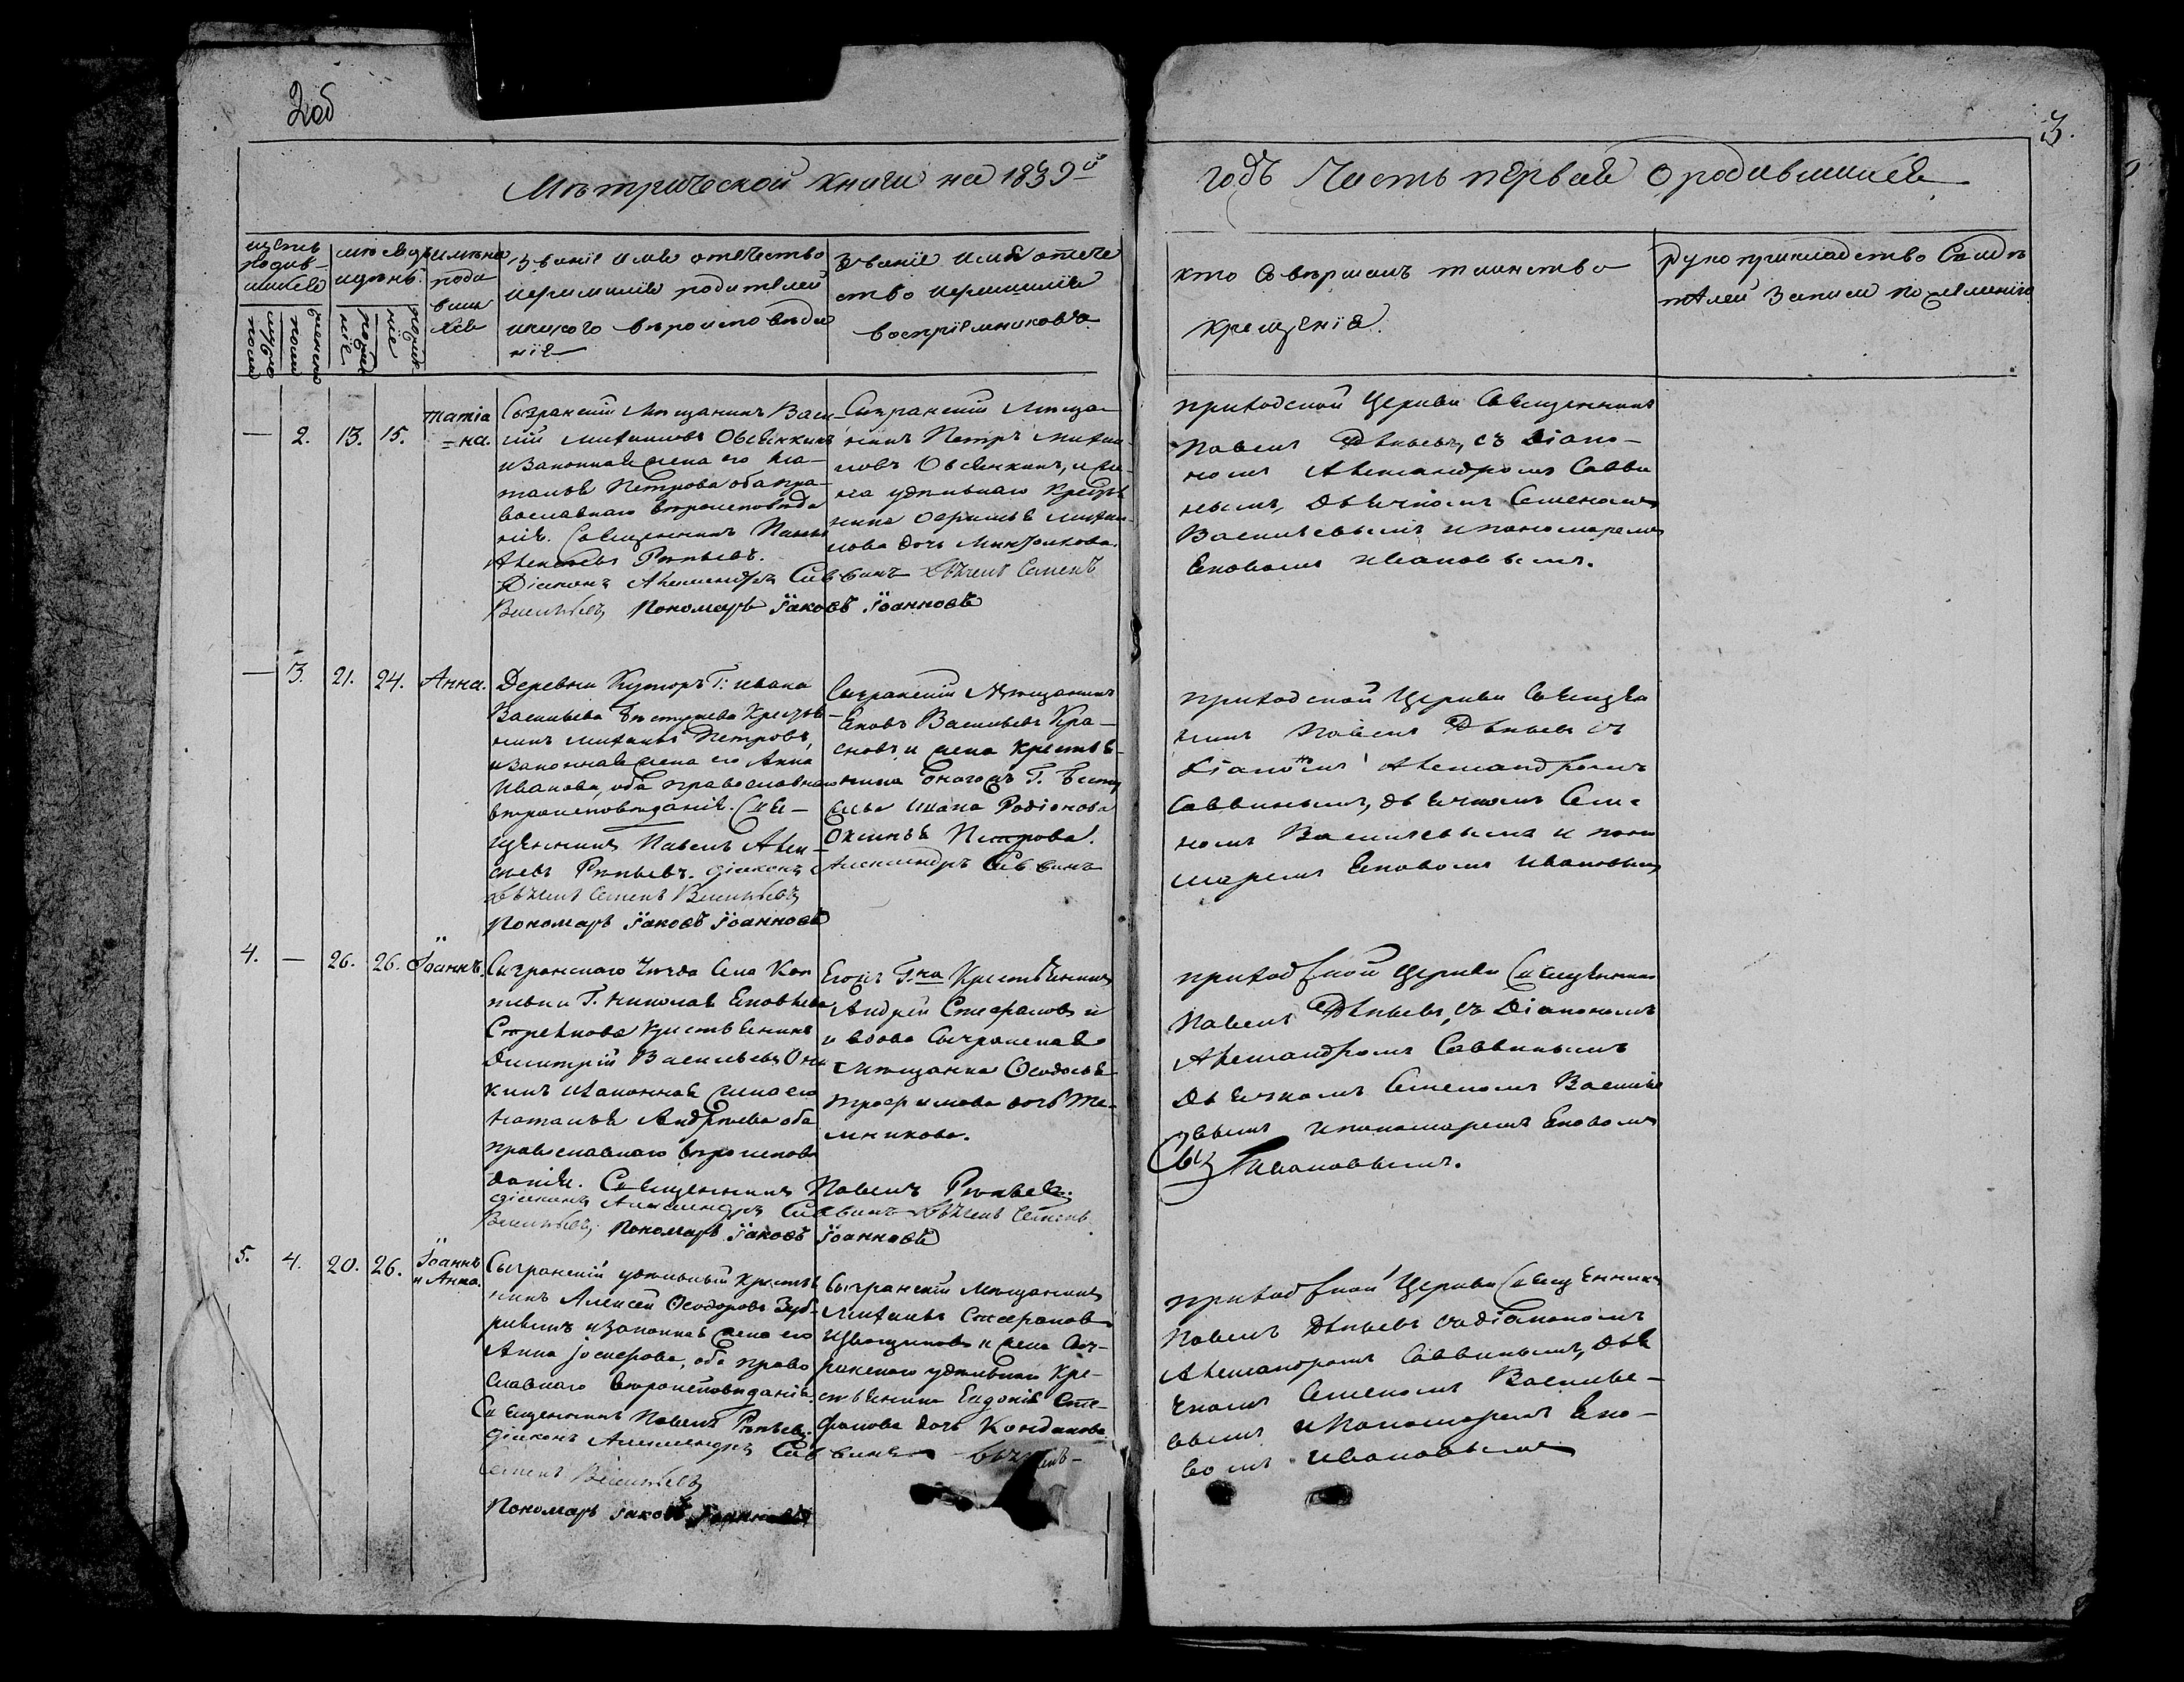 2об
3.
Метрической книги на 1839й
годъ Часть первая о родившихся
щетъ родив-шихся
мѣсяцъ и день
имена роди вших ся
Званіе имя отечество
и фамилія родителей
и какого вѣроисповѣда
нія
Званіе имя отече
ство и фамилія
воспріемниковъ
кто совершалъ таинство
крещенія.
рукоприкладство свидѣ
телей записи по желанію
мужеска пола
женска пола
рожде ніе
креще ніе
— 2. 13. 15.
Татіа
=на.
Сызранскій мещанинъ Васи-
лій Михаиловъ Овсянкинъ
и законная жена его На-
талья Петрова оба пра-
вославнаго вѣроисповѣда
нія. Священникъ Павелъ
Алексѣевъ Рѣпьевъ.
Діаконъ Александръ Саввинъ дьячекъ Семенъ
Васильевъ Пономарь Іаковъ Іоанновъ
Сызранскій меща-
нинъ Петръ Михаи
ловъ Овсянкинъ, и же-
на удѣльнаго крестья
нина Михаи
лова дочь
приходской Церкви Священникъ
Павелъ Рѣпьевъ, съ Діако-
номъ Александромъ Савви
нымъ, дьячкомъ Семеномъ
Васильевымъ и пономаремъ
Яковомъ Ивановымъ.
— 3. 21. 24. Анна.
Деревни Хуторъ Г: Ивана
Васильева Бестужева крестья
нинъ Михаилъ Петровъ,
и законная жена его Анна
Иванова, оба православнаго
вѣроисповѣданія. Свя-
щенникъ Павелъ Алек-
сѣевъ Рѣпьевъ. діаконъ
дьячекъ Семенъ Васильевъ
Пономарь Іаковъ Іоанновъ
Сызранскій Мещанинъ
Яковъ Васильевъ Кра-
сновъ и жена крестья-
нина оного жъ Г. Бесту
жева Ивана Родіонова
Оксинья Петрова.
Александръ Саввинъ
приходской Церкви Священ
никъ Павелъ Рѣпьевъ съ
Діакономъ Александромъ
Саввинымъ, дьячкомъ Семе
номъ Васильевымъ и поно
маремъ Яковомъ Ивановымъ
4. — 26. 26. Іоаннъ.
Сызранскаго уѣзда села Коп
тевки Г. Николая Яковлева
Стрелкова крестьянинъ
Димитрій Васильевъ Они
кинъ и законная жена его
Наталья Андреева оба
православнаго вѣроисповѣ
данія. Священникъ Павелъ Рѣпьевъ.
діаконъ Александръ Саввинъ дьячекъ Семенъ
Васильевъ, Пономарь Іаковъ Іоанновъ
Егожъ Г.на крестьянинъ
Андрей Стефановъ и
и вдова Сызранская
мѣщанка Ѳеодосья
Трофимова дочь Ме-
льникова.
приходской церкви Священникъ
Павелъ Рѣпьевъ, съ Діакономъ
Александромъ Саввинымъ
дьячкомъ Семеномъ Василье
вымъ и пономаремъ Яковомъ
Ивановымъ.
5. 4. 20. 26.
Іоаннъ
и Анна.
Сызранскій удѣльный крестья
нинъ Алексей Ѳеодоровъ Зуб-
рилинъ и законная жена его
Анна Іосифова, оба право
славнаго вѣроисповѣданія.
Священникъ Павелъ Рѣпьевъ.
діаконъ Александръ Саввинъ дьячекъ
Семенъ Васильевъ
Пономарь Іаковъ Іоанновъ
Сызранскій Мещанинъ
Михаилъ Стефановъ
Извощиковъ и жена Сыз-
ранскаго удѣльнаго кре-
стьянина Евдокія Сте-
фанова дочь Кондакова
приходской Церкви Священникъ
Павелъ Рѣпьевъ съ діакономъ
Александромъ Саввинымъ, дья
чкомъ Семеномъ Василье-
вымъ и Пономаремъ Яко-
вомъ Ивановымъ